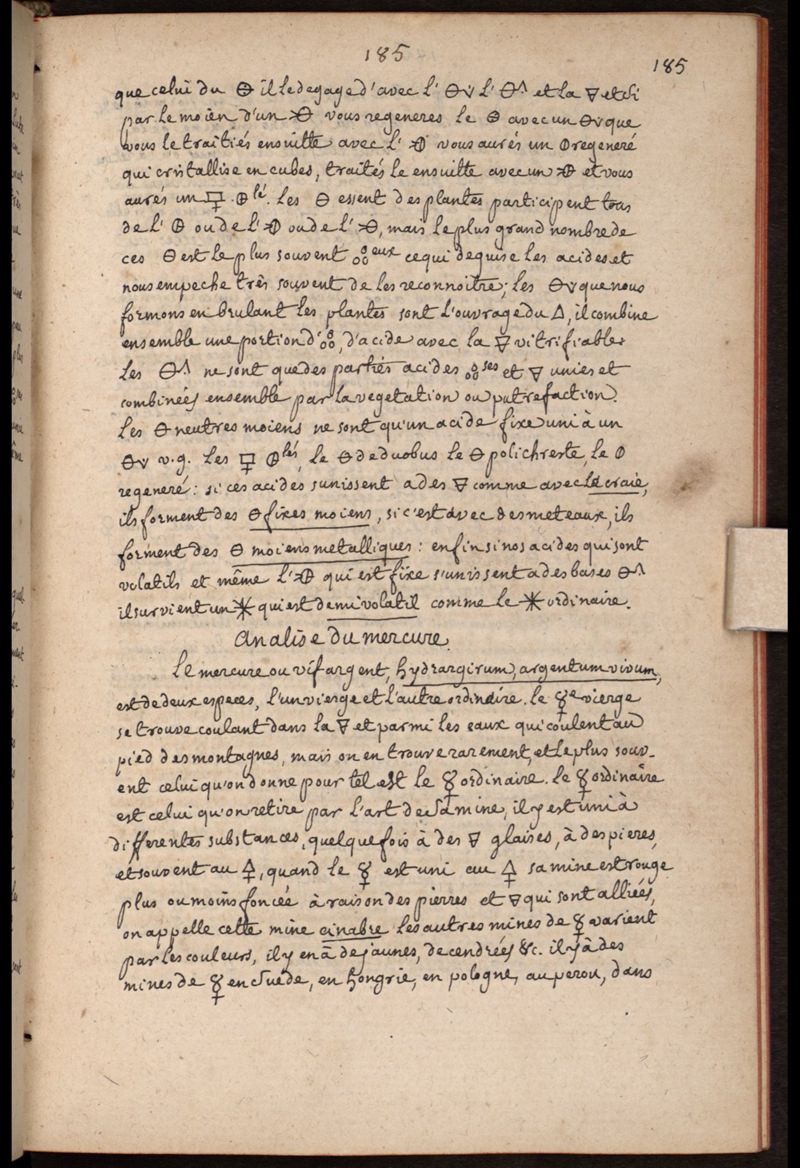 185
185
que celui du 🜔 il le degage d'avec l' 🜔v l' 🜔^ et la 🜃 et si
par le moien d'un vous regeneres le avec un 🜔v que
vous le traitiés ensuitte avec l' vous aurés un regeneré
qui cristallise en cubes, traités le ensuitte avec un et vous
aurés un lé. Les 🜔 essent des plantes participent tous
de l' ou de l' ou de l' , mais le plus grand nombre de
ces 🜔 est le plus souvent eux ce qui deguise les acides et
nous empeche très souvent de les reconnoitre; les 🜔v que nous
formons en brulant les plantes sont l'ouvrage du 🜂, il combine
ensemble une portion d' , d'acide avec la 🜃 vitrifiable.
Les 🜔^ ne sont que des parties acides ses et 🜃 unies et
combinées ensemble par la vegetation ou putrefaction.
Les 🜔 neutres moiens ne sont qu'un acide fixe uni à un
🜔v v.g. les lés, le 🜔 de duobus le 🜔 polichreste, le
regeneré: si ces acides s'unissent a des 🜃 comme avec la craie,
ils forment des 🜔 fixes moiens, si c'est avec des meteaux, ils
forment des 🜔 moiens metalliques: enfin si nos acides qui sont
volatils et même l' qui est fixe s'unissent a des bases 🜔^
il survient un ✳ qui est demi volatil comme le ✳ ordinaire.
Analise du mercure.
Le mercure ou vif argent, hydrargirum, argentum vivum,
est de deux especes, l'un vierge et l'autre ordinaire. le ☿e vierge
se trouve coulant dans la 🜃 et parmi les eaux qui coulent au
pied des montagnes, mais on en trouve rarement, et le plus souv-
ent celui qu'on donne pour tel est le ☿ ordinaire. le ☿ ordinaire
est celui qu'on retire par l'art de sa mine, il y est uni à
differentes substances, quelquefois à des 🜃 glaises, à des pieres,
et souvent au 🜍, quand le ☿ est uni au 🜍 sa mine est rouge
plus ou moins foncée à raison des pierres et 🜃 qui sont alliées,
on appelle cette mine cinabre les autres mines de ☿ varient
par les couleurs, il y en à de jaunes, de cendrées &c. il y à des
mines de ☿ en Suede, en hongrie, en pologne, au perou, dans